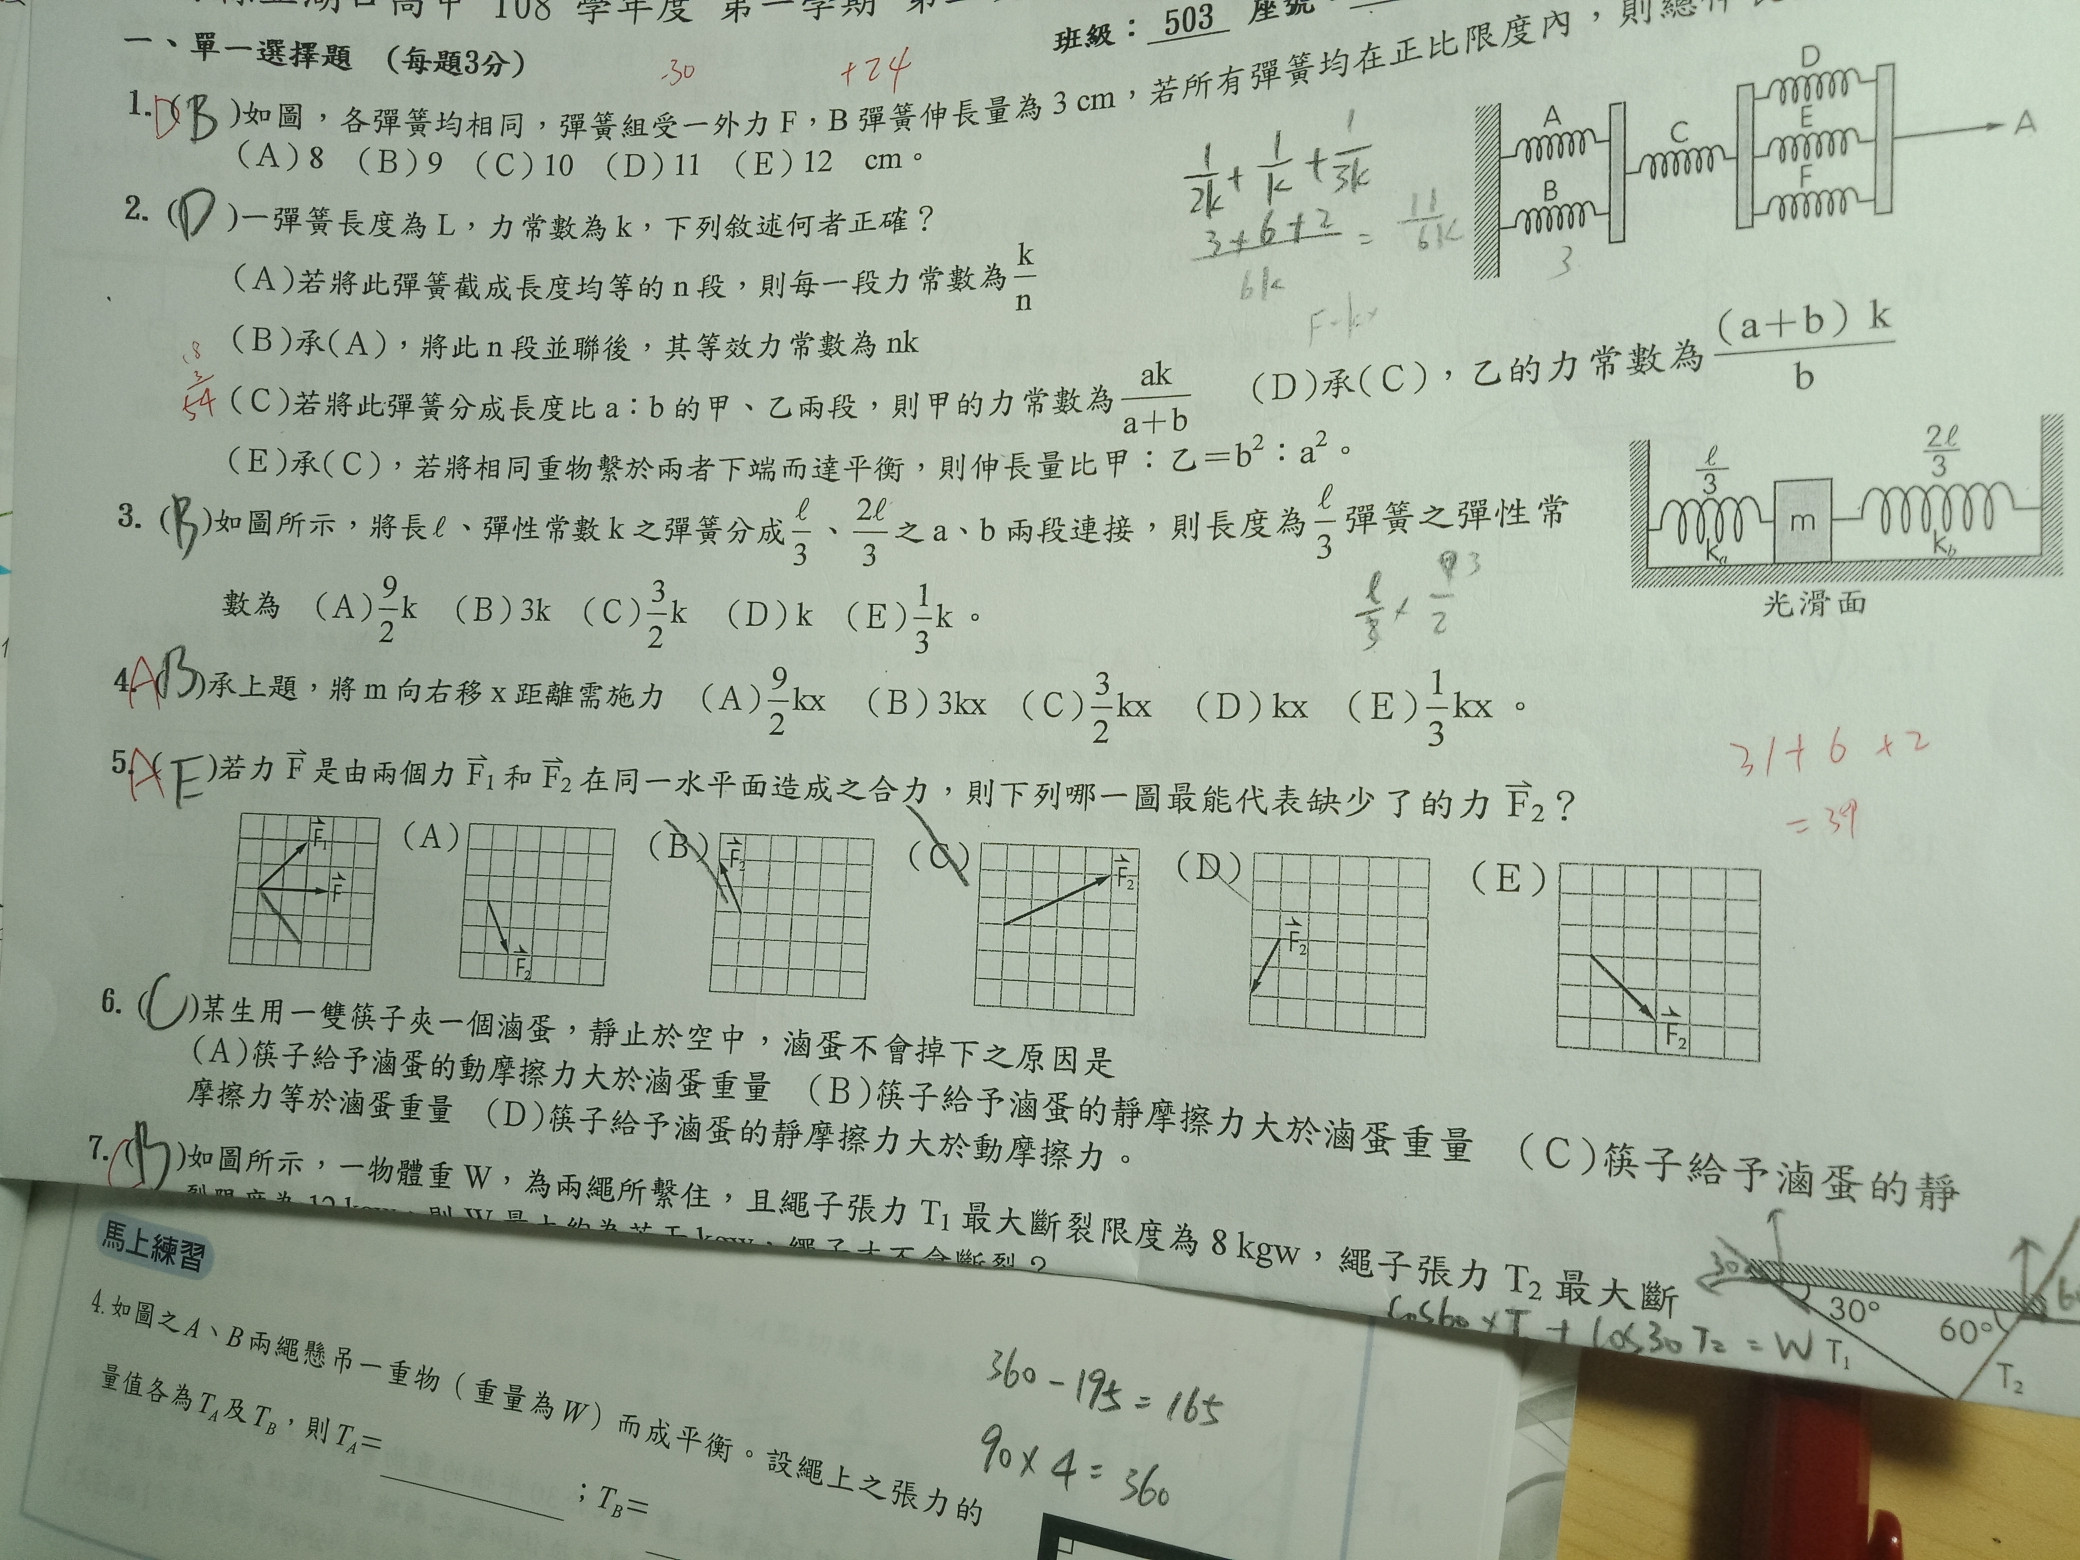 高中 108 學年度 第一學期 第
班級：503 座號
一、單一選擇題 （每題3分）
-30 +24
1. D (B)如圖，各彈簧均相同，彈簧組受一外力 F，B 彈簧伸長量為 3 cm，若所有彈簧均在正比限度內，則總伸
(A)8 (B)9 (C)10 (D)11 (E)12 cm。
A B C D E F A
3
1/2k + 1/k + 1/3k
3+6+2/6k = 11/6k
F=kx
2. (D)一彈簧長度為 L，力常數為 k，下列敘述何者正確？
(A)若將此彈簧截成長度均等的 n 段，則每一段力常數為 k/n
(B)承(A)，將此 n 段並聯後，其等效力常數為 nk
18
3
54
(C)若將此彈簧分成長度比 a：b 的甲、乙兩段，則甲的力常數為 ak/a+b (D)承(C)，乙的力常數為 (a+b) k/b
(E)承(C)，若將相同重物繫於兩者下端而達平衡，則伸長量比甲：乙＝b²：a²。
3. (B)如圖所示，將長 ℓ、彈性常數 k 之彈簧分成 ℓ/3、2ℓ/3 之 a、b 兩段連接，則長度為 ℓ/3 彈簧之彈性常
數為 (A)9/2k (B)3k (C)3/2k (D)k (E)1/3k。
ℓ/3 2ℓ/3
m
ka kb
光滑面
4. A (B)承上題，將 m 向右移 x 距離需施力 (A)9/2kx (B)3kx (C)3/2kx (D)kx (E)1/3kx。
31+6+2
=39
5. A (E)若力 F⃗ 是由兩個力 F⃗₁ 和 F⃗₂ 在同一水平面造成之合力，則下列哪一圖最能代表缺少了的力 F⃗₂？
F⃗₁ F⃗ (A) F⃗₂ (B) F⃗₂ (C) F⃗₂ (D) F⃗₂ (E) F⃗₂
6. (C)某生用一雙筷子夾一個滷蛋，靜止於空中，滷蛋不會掉下之原因是
(A)筷子給予滷蛋的動摩擦力大於滷蛋重量 (B)筷子給予滷蛋的靜摩擦力大於滷蛋重量 (C)筷子給予滷蛋的靜
摩擦力等於滷蛋重量 (D)筷子給予滷蛋的靜摩擦力大於動摩擦力。
7. C (B)如圖所示，一物體重 W，為兩繩所繫住，且繩子張力 T₁ 最大斷裂限度為 8 kgw，繩子張力 T₂ 最大斷
裂限度為 12 kgw，則 W 最大約為若干 kgw，繩子才不會斷裂？
30° 60° T₁ T₂
cos60 × T₁ + cos30 T₂ = W
馬上練習
4. 如圖之A、B兩繩懸吊一重物（重量為W）而成平衡。設繩上之張力的
量值各為TA及TB，則TA=＿＿＿；TB=＿＿＿
360 - 195 = 165
90 × 4 = 360